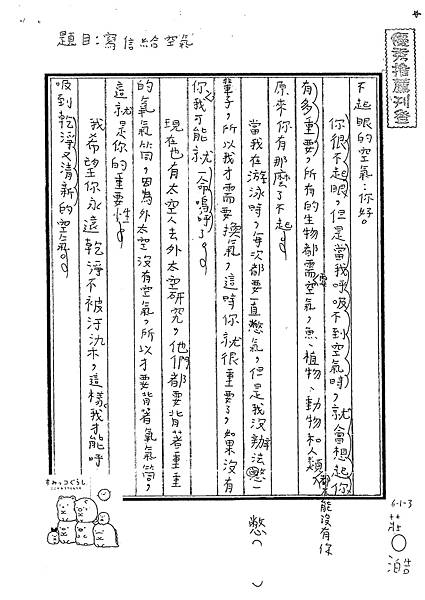 優秀推薦刊登
題目:寫信給空氣
6-1-3
莊○浩
不起眼的空氣:你好。
你很不起眼,但是當我呼吸不到空氣時,就會想起你
有多重要,所有的生物都需要空氣,魚、植物、動物和人類都不能沒有你
原來你有那麼了不起。
當我在游泳時,每次都要一直憋氣,但是我沒辦法憋一
輩子,所以我才需要換氣,這時你就很重要了,如果沒有
你我可能就一命嗚呼了。
現在也有太空人去外太空研究,他們都要背著重重
的氧氣筒,因為外太空沒有空氣,所以才要背著氧氣筒,
這就是你的重要性。
我希望你永遠乾淨不被汙染,這樣我才能呼
吸到乾淨又清新的空氣。
憋
すみっコぐらし